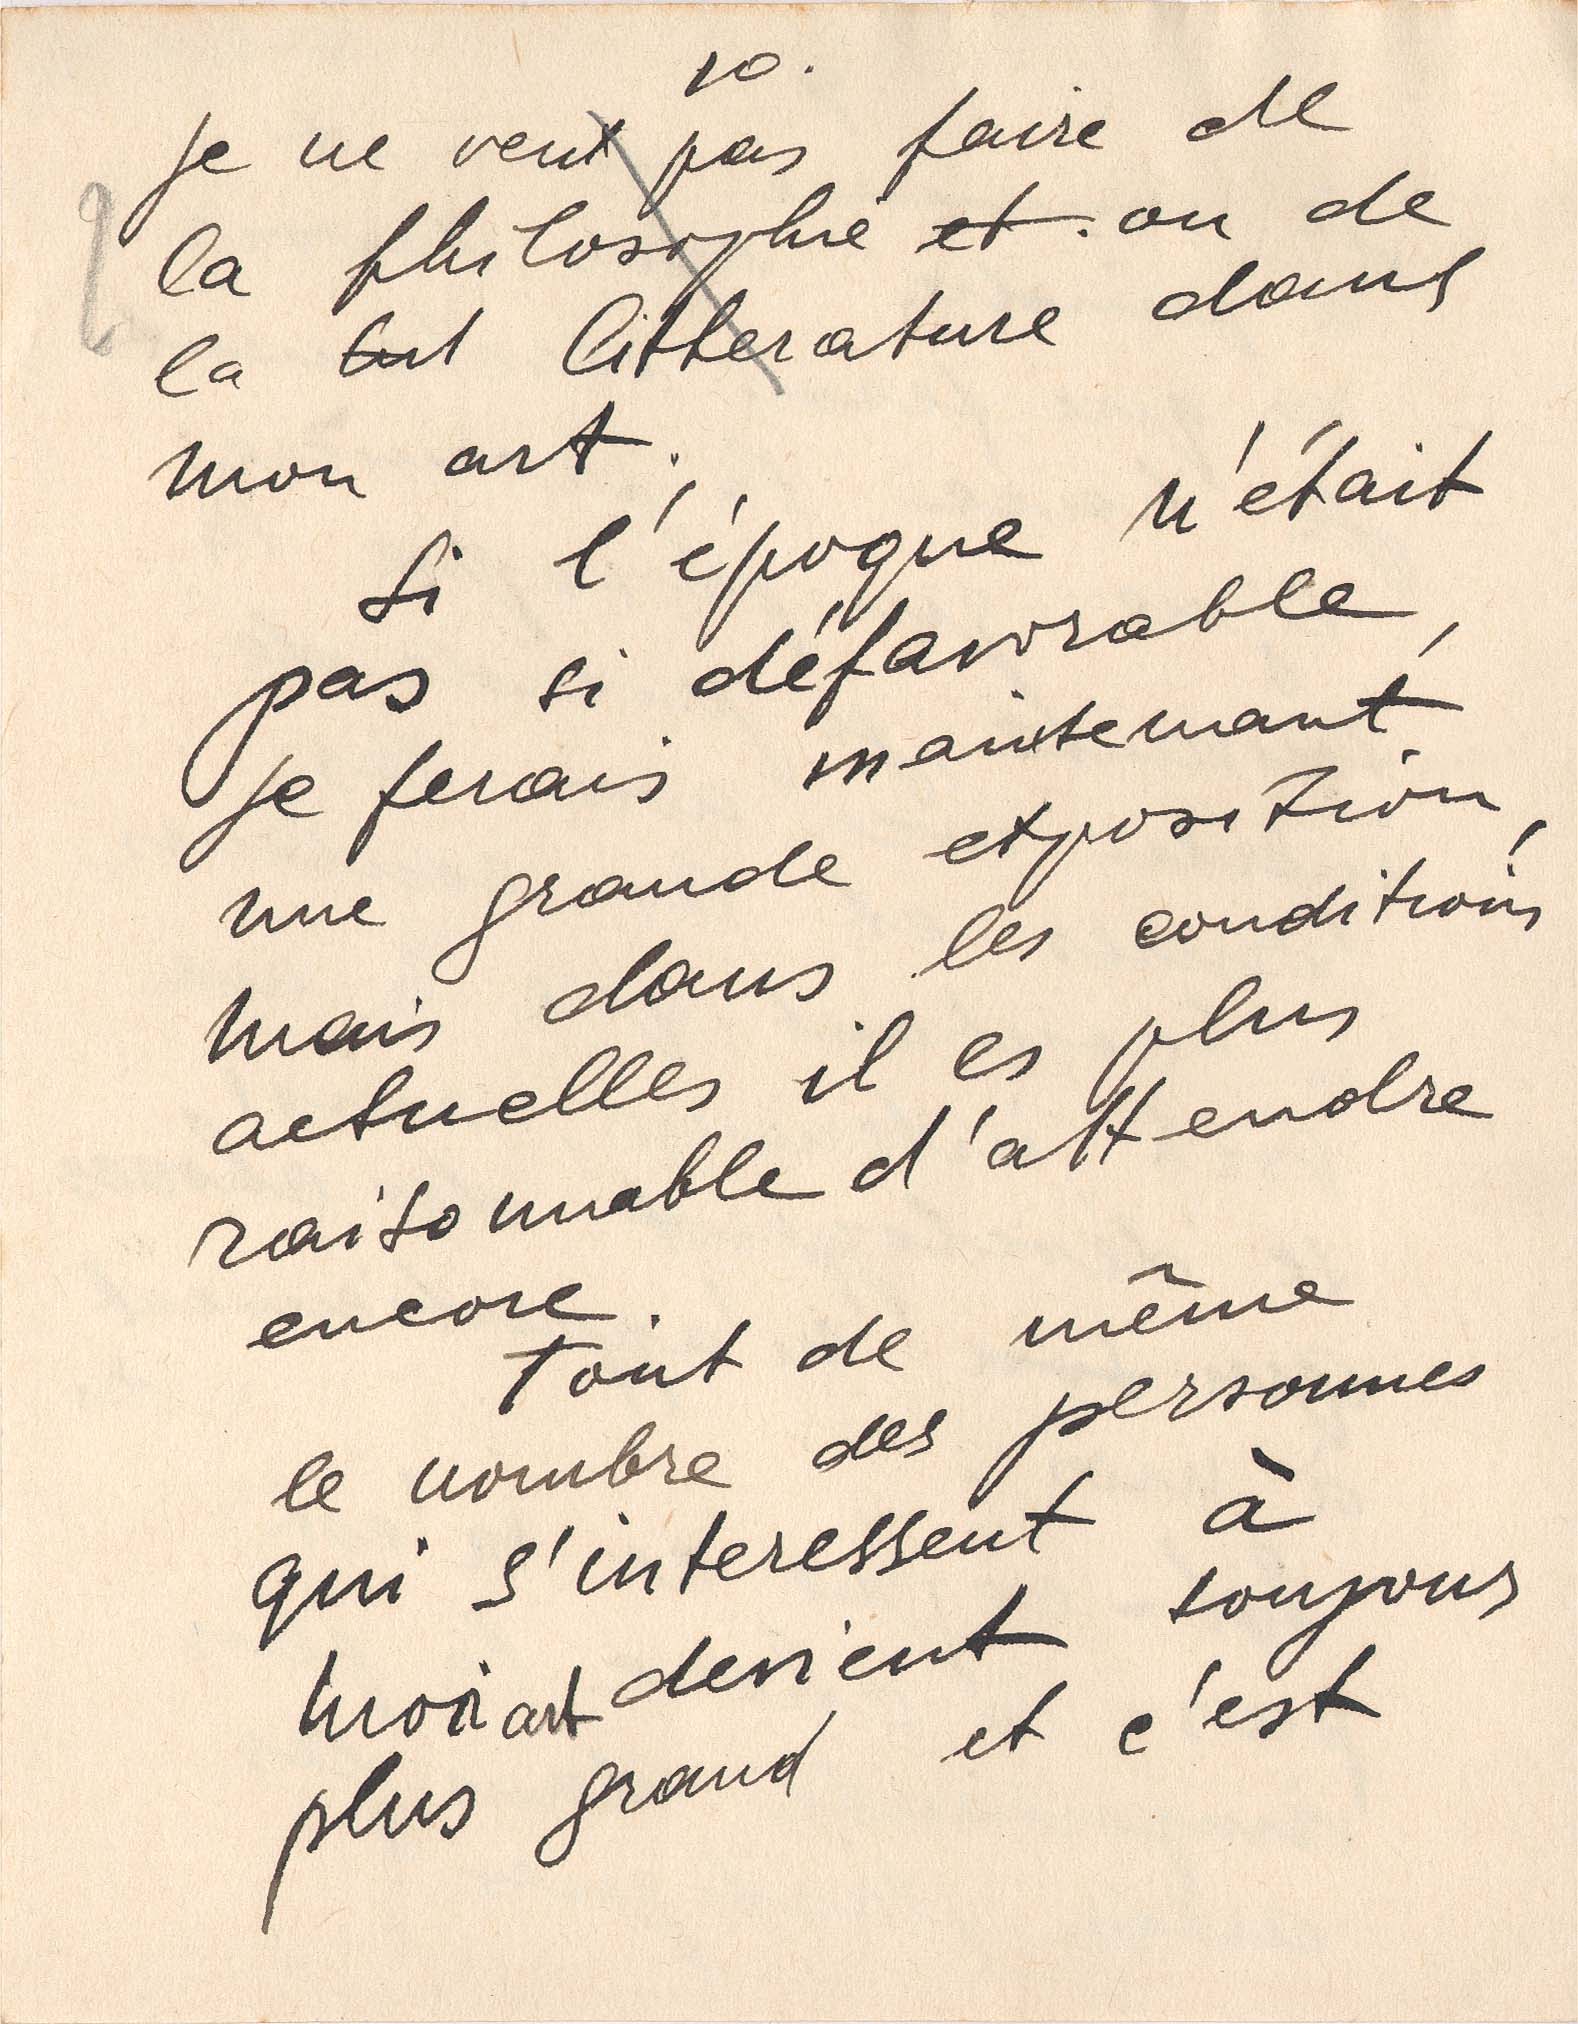 10.
je ne veut pas faire de
la philosophie et ou de
la litterature dans
mon art.
Si l'époque n'était
pas si défavorable,
je ferais maintenant
une grande exposition,
mais dans les conditions
actuelles il es plus
raisonnable d'attendre
encore.
Tout de même
le nombre des personnes
qui s'interessent à
mon art devient toujours
plus grand et c'est